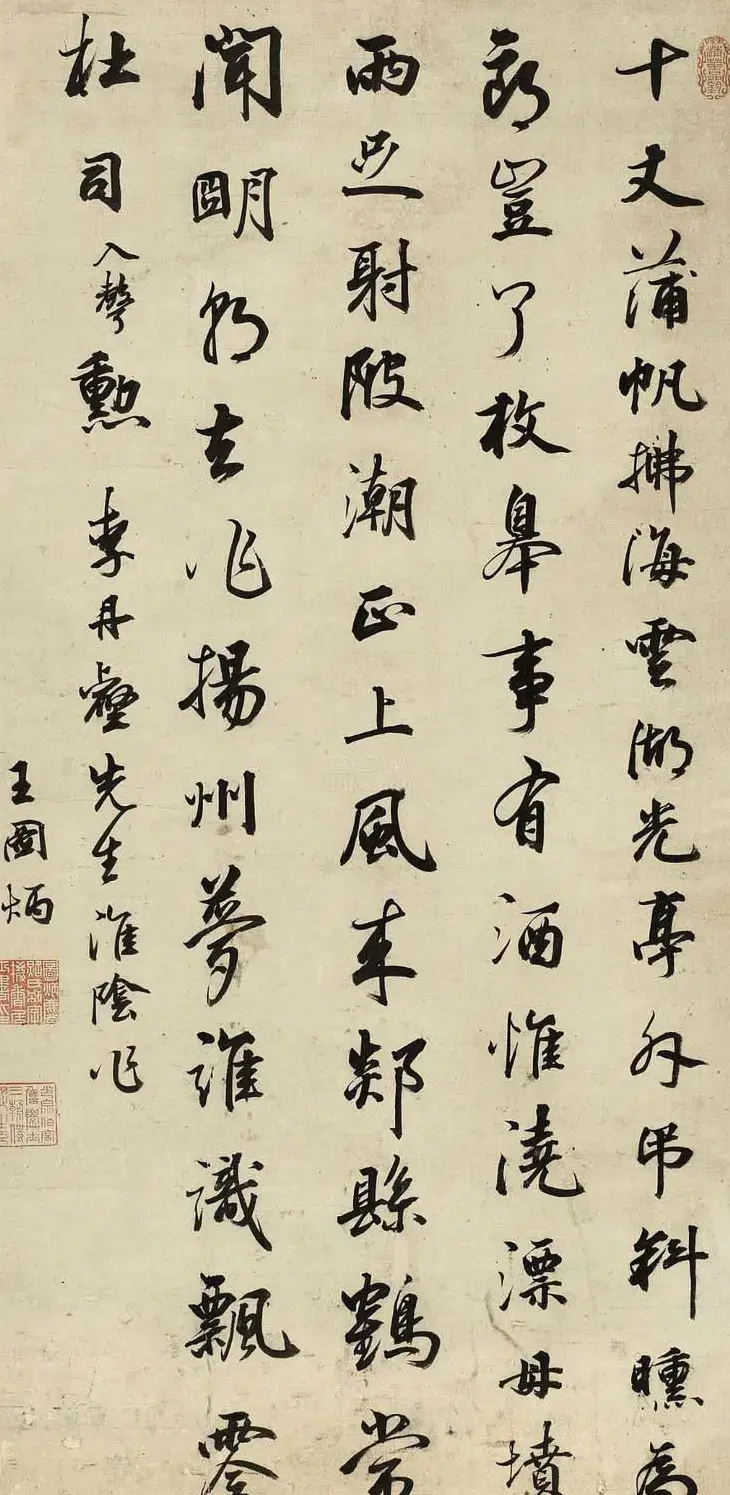 十丈蒲帆拂海雲湖光亭外吊斜曛為
郎豈了枚皋事有酒惟澆漂母墳
雨足射陂潮正上風來郯縣鶴常
聞朙朝去作揚州夢誰識飄零
杜司入聲勳 李丹壑先生淮陰作
王圖炳